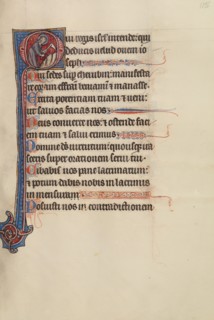 Qui regis isrł intende: qui
deducis uelud ouem io
seph.
Qui sedes sup cherubim: manifesta
re coram effraim beniamin ⁊ manasse.
Excita potentiam tuam ⁊ ueni:
ut saluos facias nos
Deus conuerte nos: ⁊ ostende faci
em tuam ⁊ salui erimus
Domine deus uirtutum: quousq;
super orationem serui tui.
Cibabis nos pane lacrimarum:
⁊ potum dabis nobis in lacrimis
in mensura
Posuisti nos in contradictionem